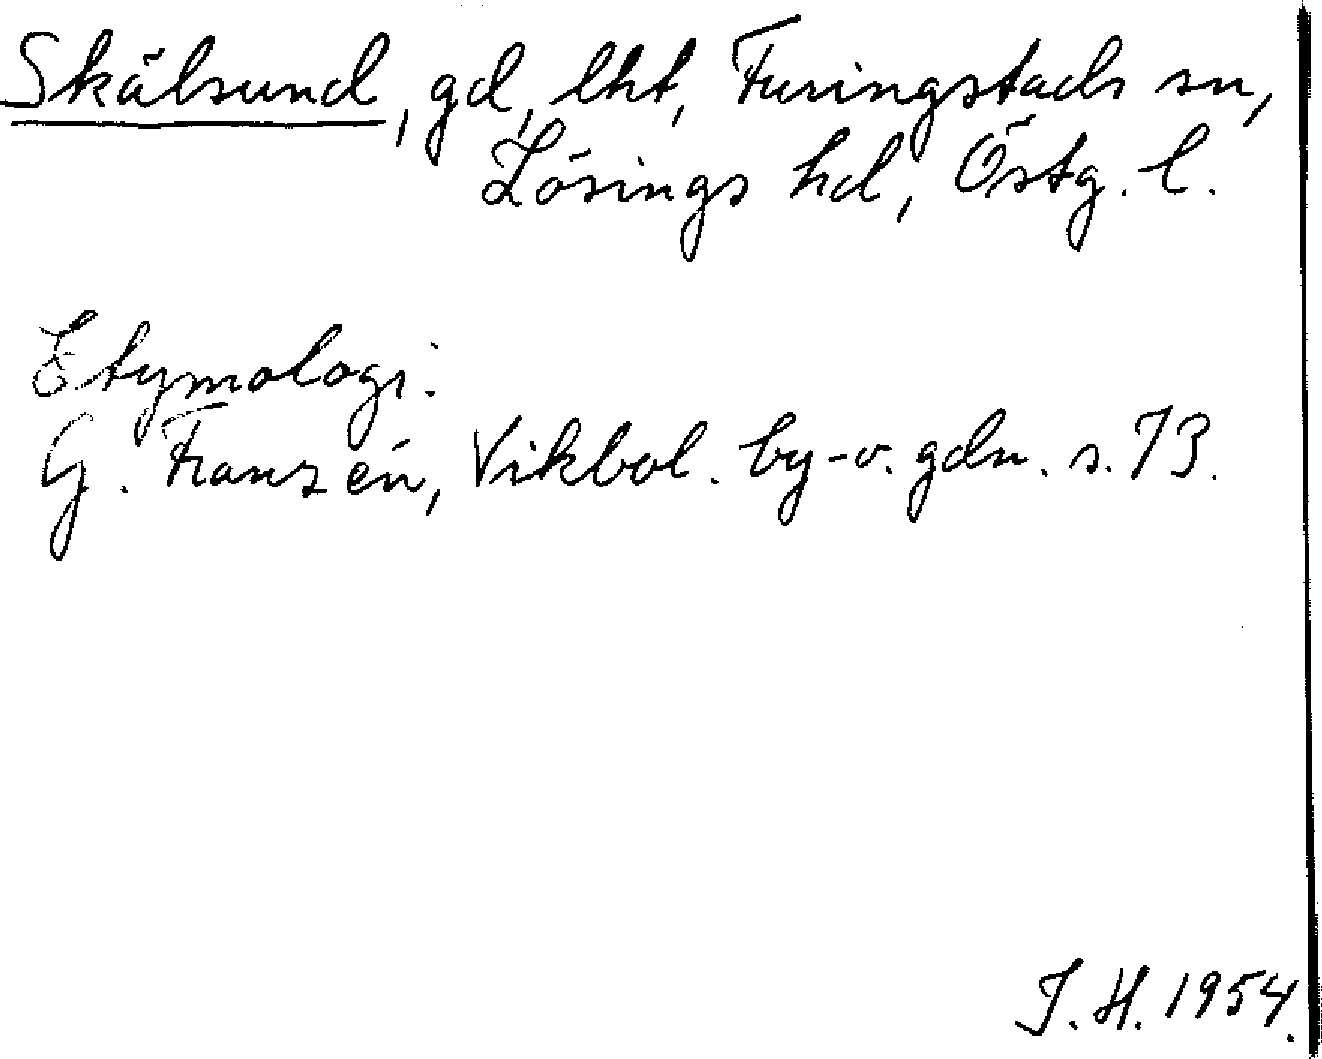 Skälsund, gd, lht, Furingstads sn,
Lösings hd, Östg. l.
Etymologi:
G. Franzén, Vikbol. by- o. gdn. s. 73.
J. H. 1954.